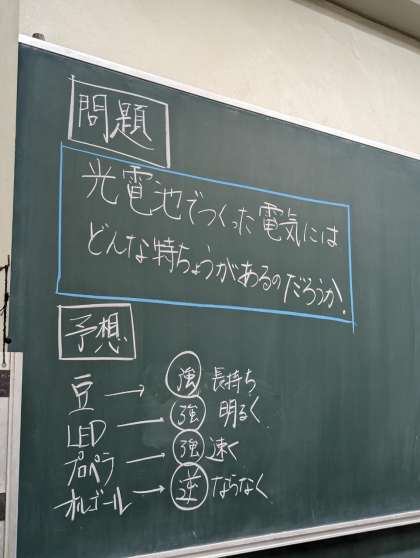 問題
光電池でつくった電気には
どんな特ちょうがあるのだろうか.
予想
豆 → 強 長持ち
LED — 強 明るく
プロペラ — 強 速く
オルゴール → 逆 ならなく